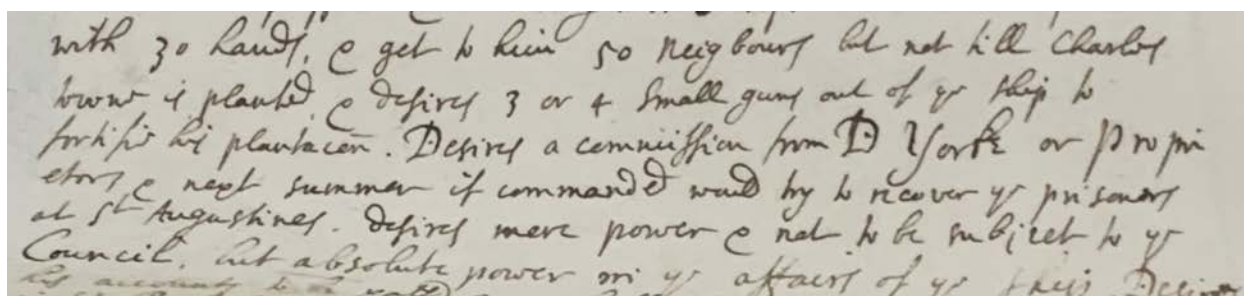 with 30 hands, & get to him 50 neigbours but not till Charles
towne is planted & desires 3 or 4 small guns out of ye ship to
fortifie his plantacon. Desires a commission from D Yorke or Propri
etors & next summer if commanded would try to recover ye prisoners
at St Augustines. desires more power & not to be subject to ye
Council, but absolute power in ye affairs of ye ship Desires
his accounts to be